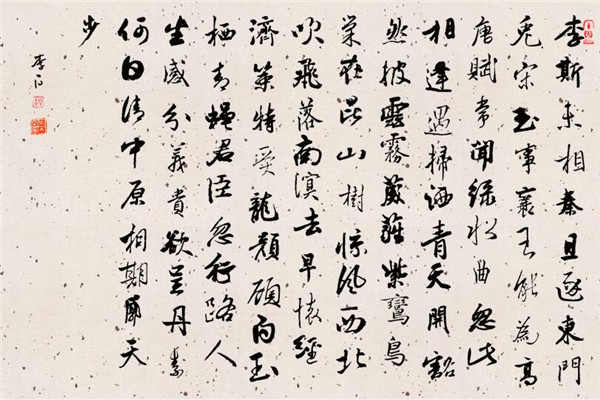 李斯未相秦且逐東門
兔宋玉事襄王能為高
唐賦常聞綠水曲忽此
相逢遇掃洒青天開豁
然披雲霧葳蕤紫鸞鳥
巢在昆山樹惊風西北
吹飛落南溟去早懷經
濟策特受龍顏顧白玉
栖青蠅君臣忽行路人
生感分義貴欲呈丹素
何日清中原相期廓天
步
李白